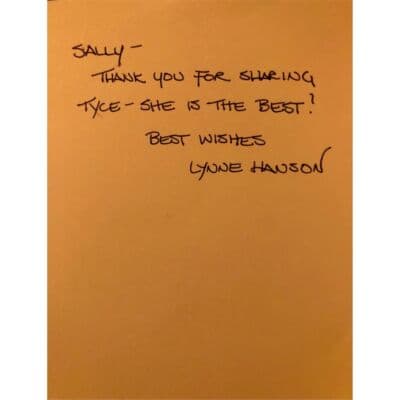 SALLY –
THANK YOU FOR SHARING
TYCE – SHE IS THE BEST!
BEST WISHES
LYNNE HANSON